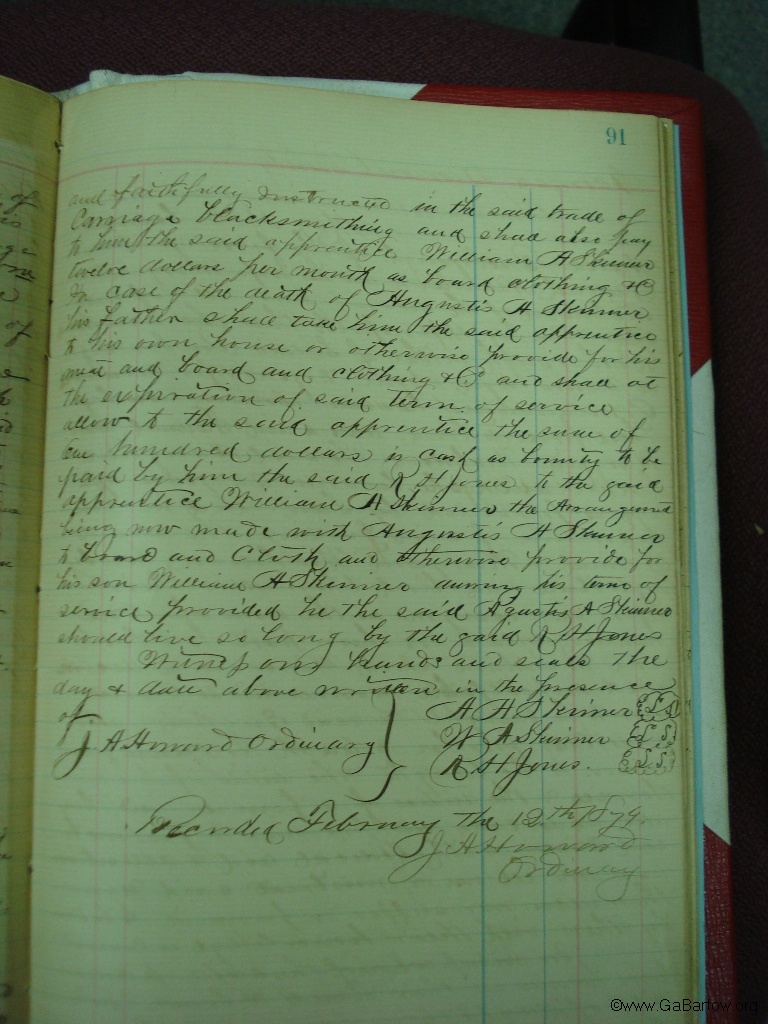 91
and faithfully instructed in the said trade of
Carriage blacksmithing and shall also pay
to him the said apprentice William A Skinner
twelve dollars per month as board clothing &C
In case of the death of Augustis H Skinner
his father shall take him the said apprentice
to his own house or otherwise provide for his
meat and board and clothing &C and shall at
the expiration of said term of service
allow to the said apprentice the sum of
one hundred dollars in cash as bounty to be
paid by him the said R H Jones to the said
apprentice William A Skinner the Arrangement
being now made with Augustis H Skinner
to board and Cloth and otherwise provide for
his son William A Skinner during his term of
service provided he the said Agustis A Skinner
should live so long by the said R H Jones
Witness our hands and seals the
day & date above written in the presence
of
A H Skinner LS
J A Howard Ordinary
W A Skinner LS
R H Jones. LS
Recorded February the 12th 1879.
J A Howard
Ordinary
©www.GaBartow.org